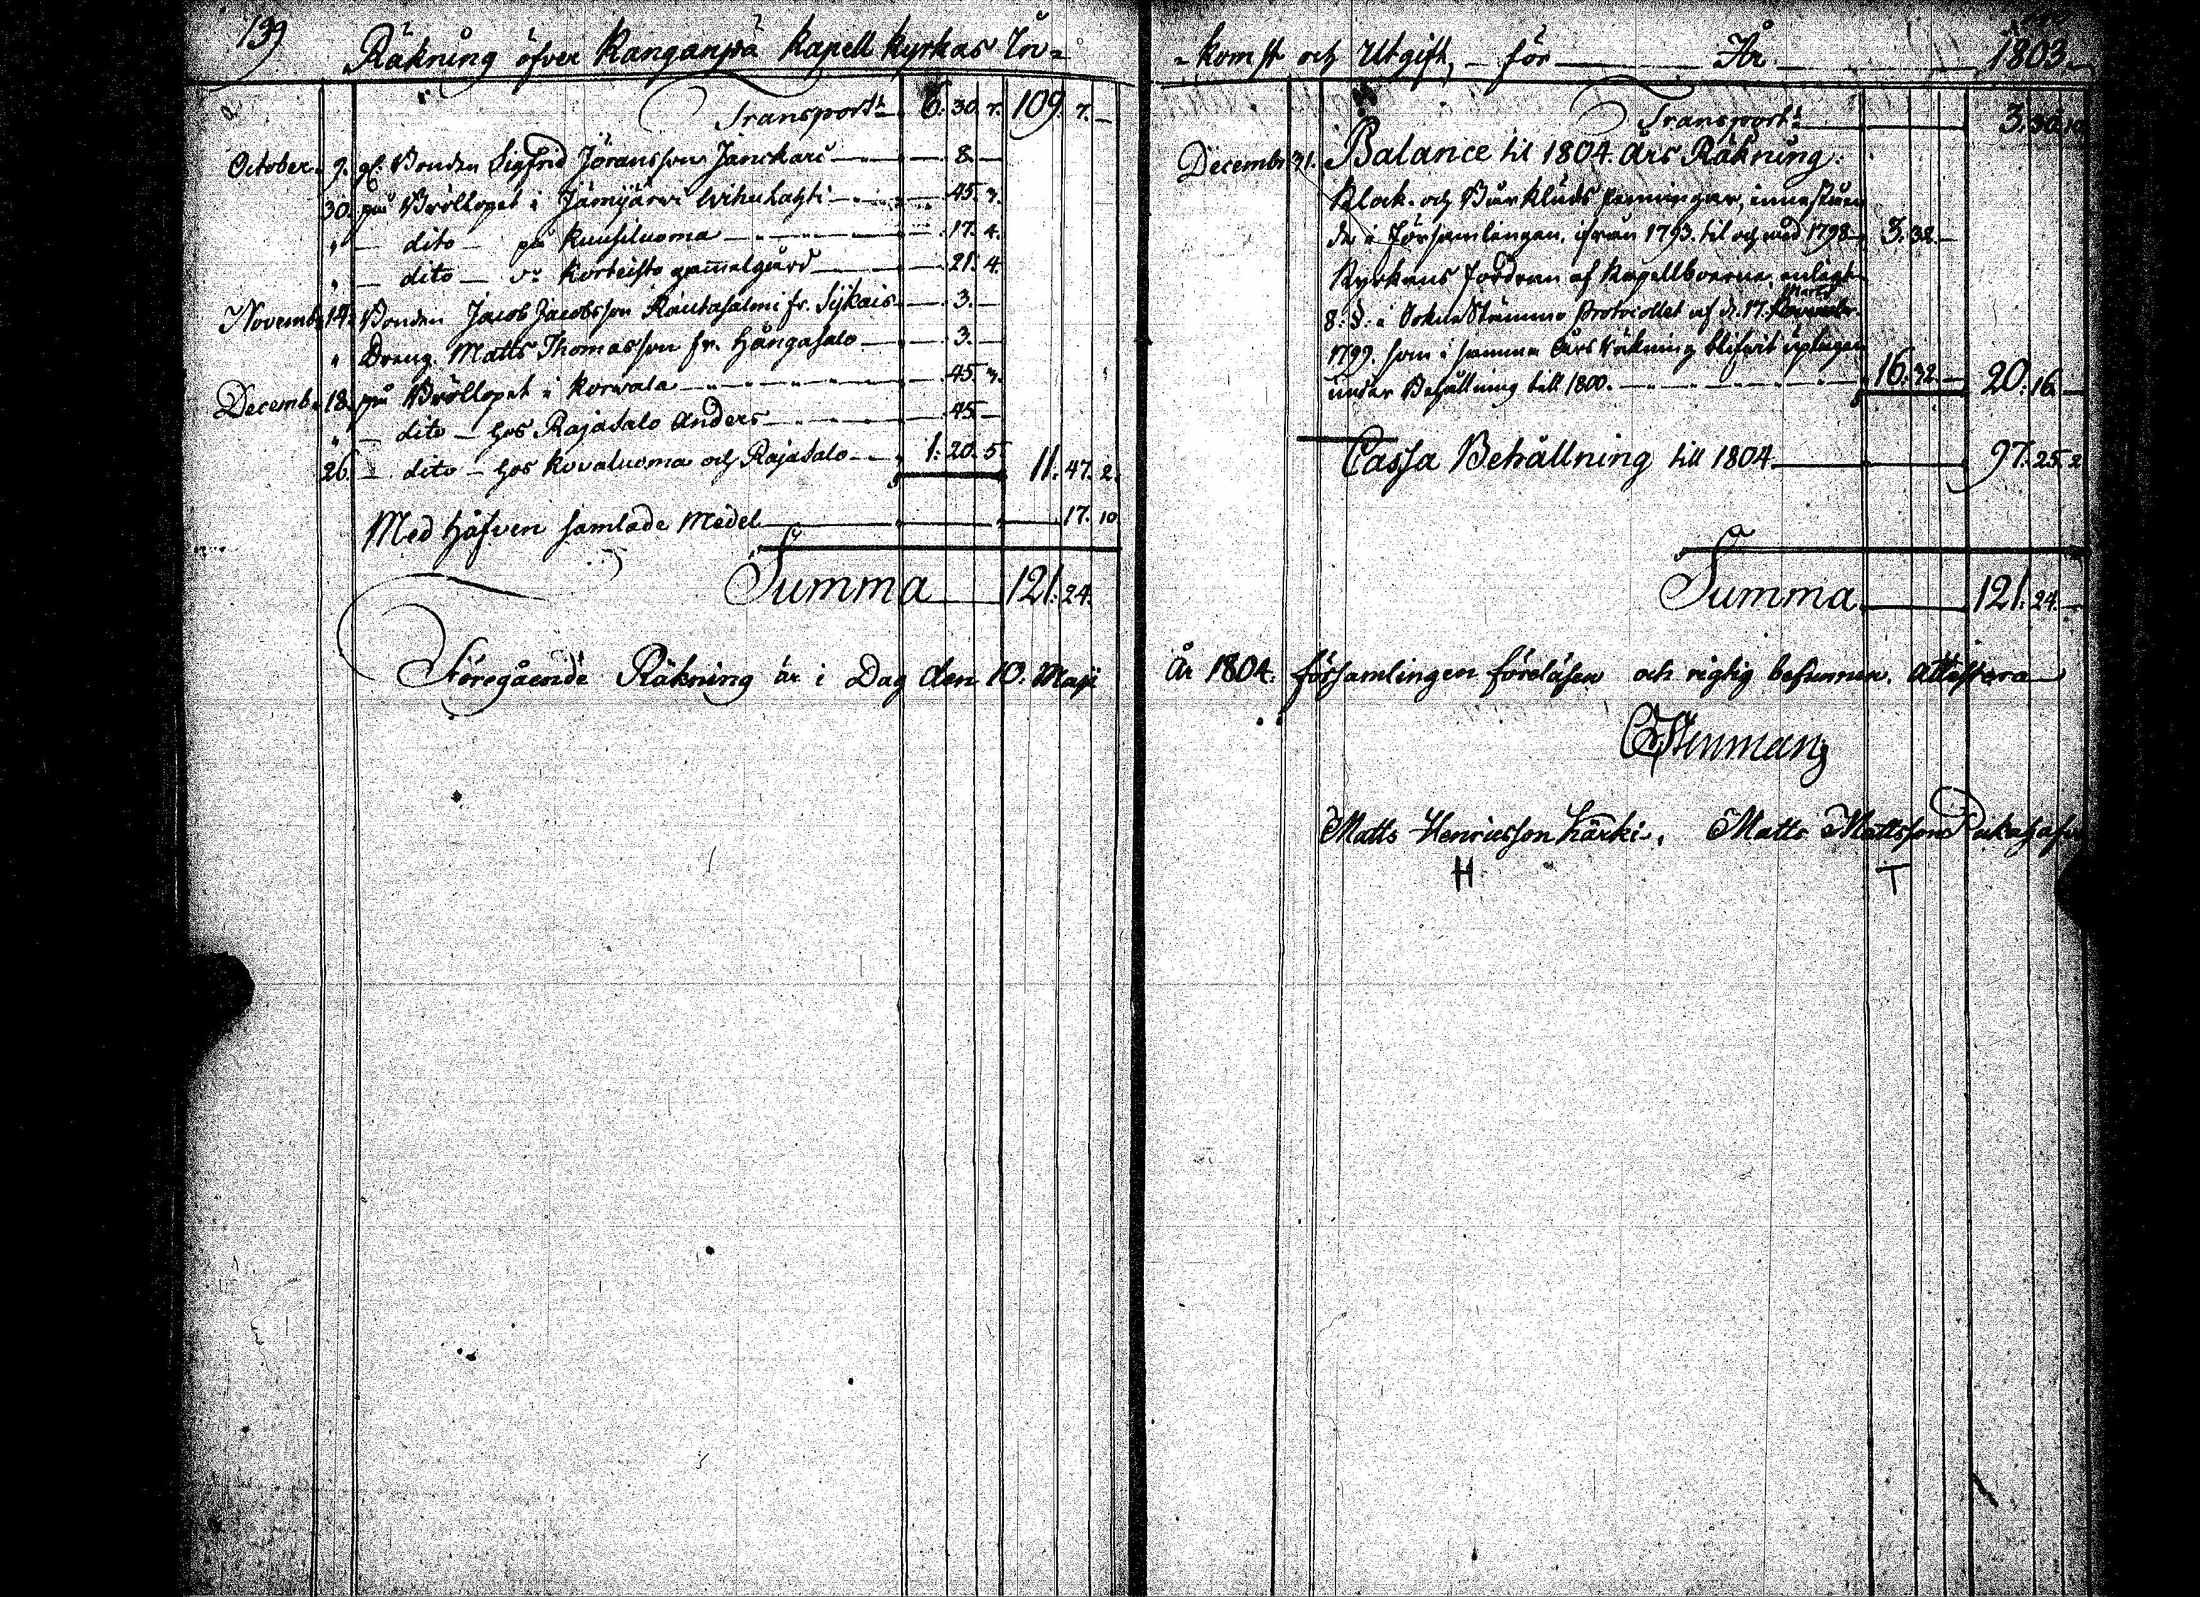 139
Räkning öfver Kangasniä Kapell Kyrkas In-
Transport 6. 30. 7. 109. 7. —
October 9. gl. Bonden Sigfrid Jöransson Janckari — 8. —
30. på Bröllopet i Jämijärvi Wihulahti — 45. 7.
" — dito — på Kuusiluoma — 17. 4.
" — dito — Korteisto gammelgård — 21. 4.
Novemb. 14. Bonden Jacob Jacobsson Rautasalmi fr. Sykais — 3. —
" Dreng. Matts Thomasson fr. Hångasalo — 3. —
Decemb. 18. på Bröllopet i Korwala — 45. 7.
" — dito — hos Rajasalo Anders — 45. —
26. — dito — hos Kovaluoma och Rajasalo — 1. 20. 5. 11. 47. 2.
Med Håfven samlade Medel — 17. 10.
Summa 121. 24.
Föregående Räkning är i Dag den 10. Maji
-komst och Utgift, — för — År — 1803.
Transport 3. 30. 10
Decembr. 31. Balance til 1804. års Räkning:
Klock- och Bårklåds penningar, innestuen
de i Församlingen, ifrån 1793. til och med 1798 3. 32. —
Kyrkans fordran af Kapellboerne, enligt
Martii
8. §. i Sokne Stämmo Protocollet af d. 17.
1799. som i samma Års Räkning blifvit uptagen
under Behållning till 1800. — 16. 32. — 20. 16. —
Cassa Behållning till 1804 — 97. 25. 2
Summa 121. 24. —
År 1804. församlingen föreläsen och rigtig befunnen. Attestera
Matts Henricsson Härki. Matts Mattsson
H T